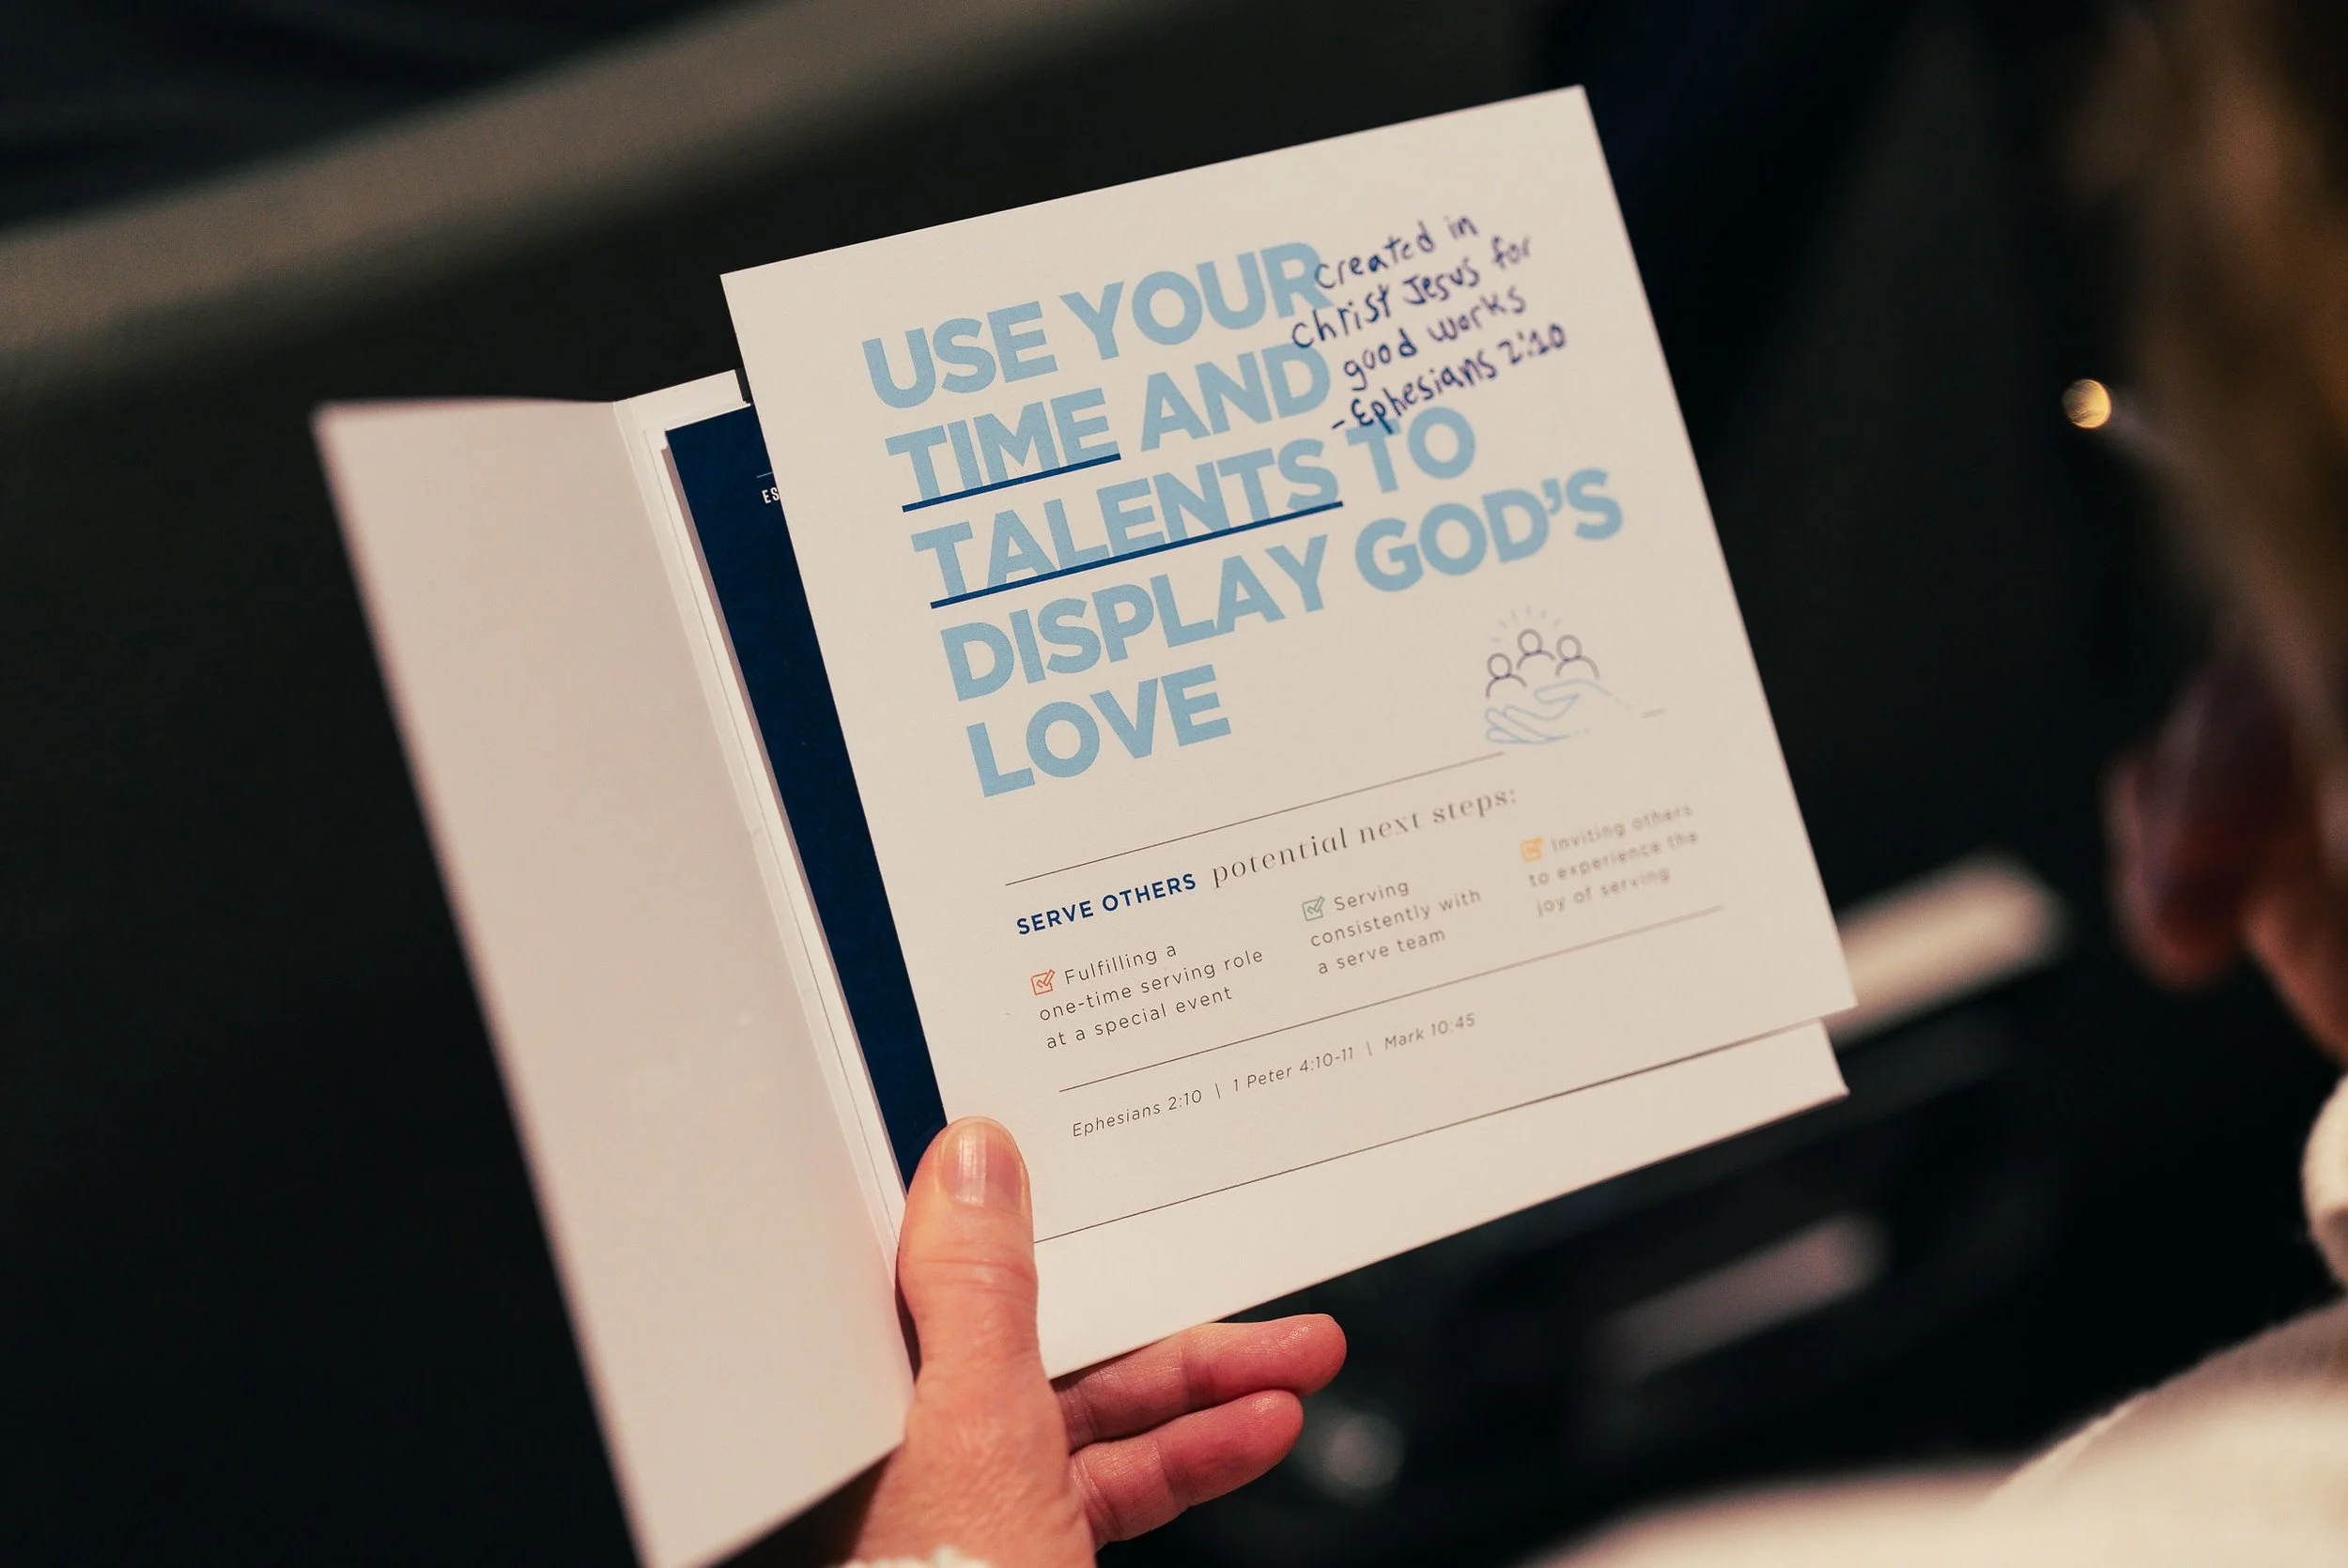 created in
christ Jesus for
good works
-Ephesians 2:10
USE YOUR
TIME AND
TALENTS TO
DISPLAY GOD'S
LOVE
SERVE OTHERS potential next steps:
Fulfilling a
one-time serving role
at a special event
Serving
consistently with
a serve team
Inviting others
to experience the
joy of serving
Ephesians 2:10 | 1 Peter 4:10-11 | Mark 10:45
ES